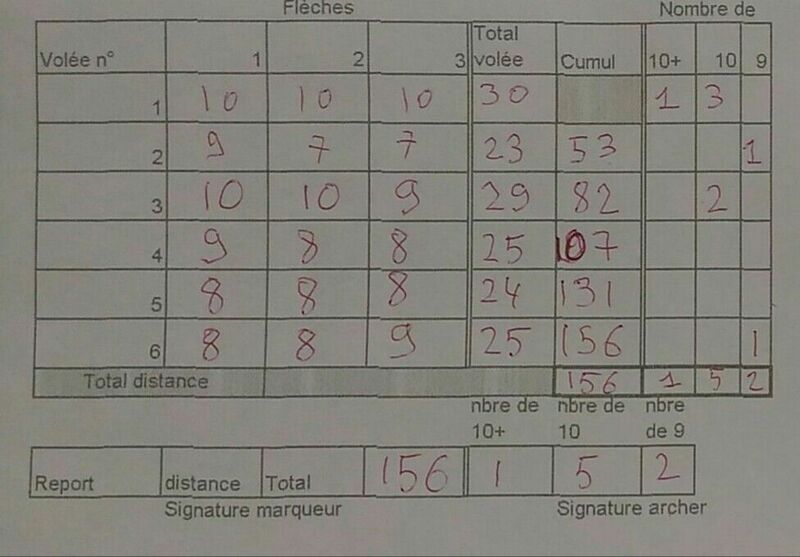 Flèches Nombre de
Volée n° 1 2 3 Total volée Cumul 10+ 10 9
1 10 10 10 30 1 3
2 9 7 7 23 53 1
3 10 10 9 29 82 2
4 9 8 8 25 107
5 8 8 8 24 131
6 8 8 9 25 156 1
Total distance 156 1 5 2
nbre de 10+ nbre de 10 nbre de 9
Report distance Total 156 1 5 2
Signature marqueur Signature archer